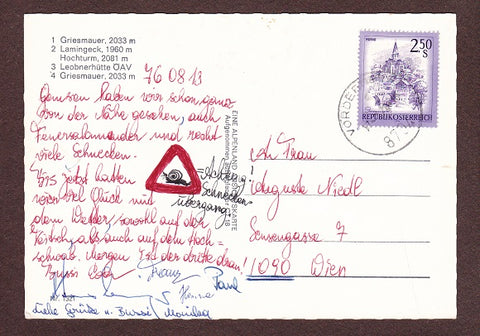 1 Griesmauer, 2033 m
2 Lamingeck, 1960 m
Hochturm, 2081 m
3 Leobnerhütte ÖAV
4 Griesmauer, 2033 m
76 08 13
Gemsen haben wir schon ganz
von der Nähe gesehen, auch
Feuersalamander und recht
viele Schnecken.
Bis jetzt hatten
wir viel Glück mit
dem Wetter, sowohl auf der
als auch auf dem Hoch-
schwab. Morgen ist der dritte dran!
Bussi
Franz
Paul
liebe Grüße u. Bussi, Monika
Achtung!
Schnecken-
übergang!
EINE ALPENLAND
2.50
S
REPUBLIK ÖSTERREICH
VORDER
An Frau
Auguste Niedl
Sensengasse 7
1090 Wien